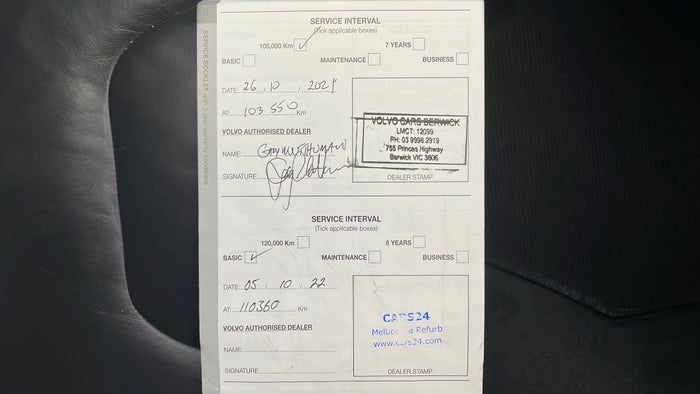 SERVICE BOOKLET with 3 year warranty conditions
SERVICE INTERVAL
(Tick applicable boxes)
105,000 Km ✓ 7 YEARS
BASIC MAINTENANCE BUSINESS
DATE: 26 , 10 , 2021
AT: 103 550 Km
VOLVO AUTHORISED DEALER
NAME:
SIGNATURE:
VOLVO CARS BERWICK
LMCT: 12099
PH: 03 9998 2919
755 Princes Highway
Berwick VIC 3806
DEALER STAMP
SERVICE INTERVAL
(Tick applicable boxes)
120,000 Km 8 YEARS
BASIC ✓ MAINTENANCE BUSINESS
DATE: 05 , 10 , 22
AT: 110360 Km
VOLVO AUTHORISED DEALER
NAME:
SIGNATURE:
CARS24
Melbourne Refurb
www.cars24.com
DEALER STAMP